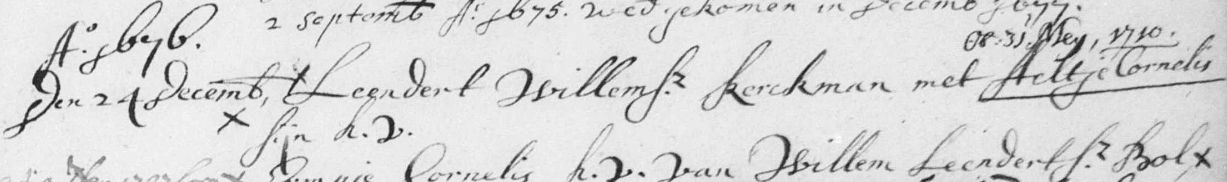 2 septemb Aº 1675. wed. gekomen in decemb 1677.
Aº 1676.
ob. 31 Mey, 1710.
Den 24 decemb, Leendert Willemsz kerckman met Aeltje Cornelis
sijn h. v.
Cornelis h. v. van Willem Leendertsz Bol x